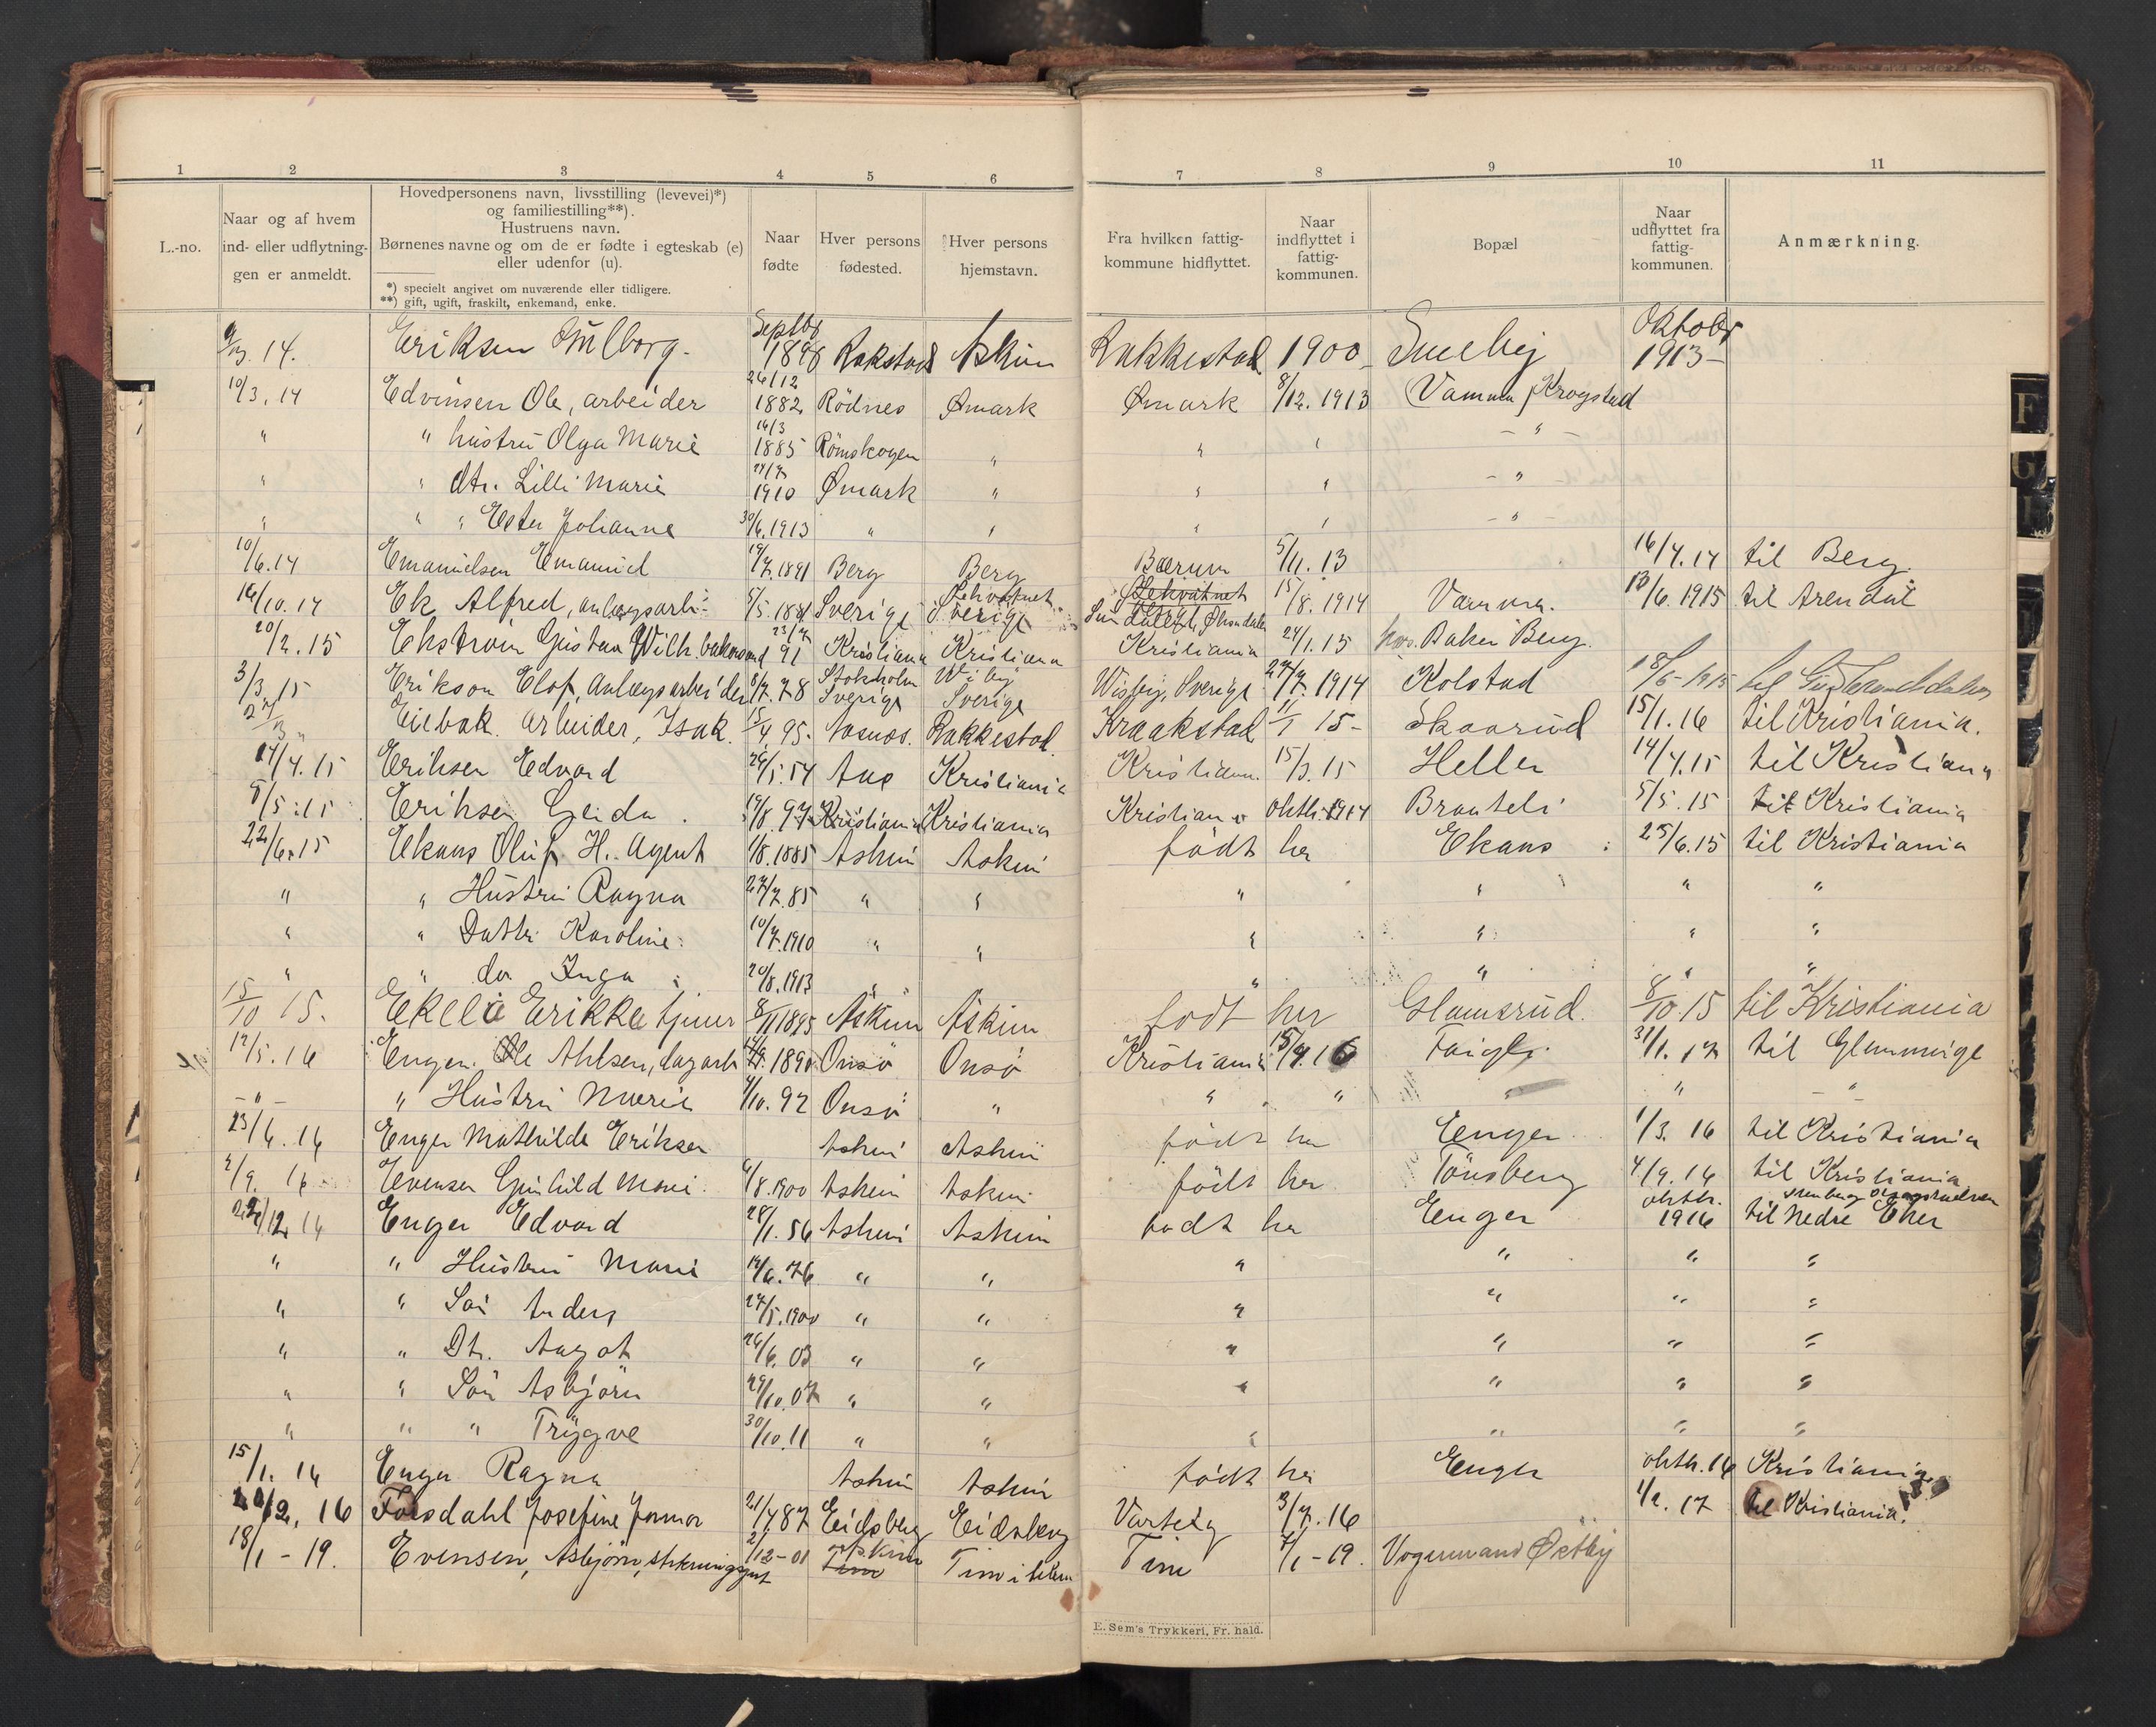 1 2 3 4 5 6 7 8 9 10 11
L.-no.
Naar og af hvem ind- eller udflytningen er anmeldt.
Hovedpersonens navn, livsstilling (levevei)*) og familiestilling**). Hustruens navn. Børnenes navne og om de er fødte i egteskab (e) eller udenfor (u).
*) specielt angivet om nuværende eller tidligere.
**) gift, ugift, fraskilt, enkemand, enke.
Naar fødte
Hver persons fødested.
Hver persons hjemstavn.
Fra hvilken fattigkommune hidflyttet.
Naar indflyttet i fattigkommunen.
Bopæl
Naar udflyttet fra fattigkommunen.
Anmærkning.
Eriksen Septbr 1898 Rakstad Askim Rakkestad 1900 Oktober 1913
10/3. 14 Edvinsen Ole, arbeider 26/12 1882 Rödnes Ømark Ømark 8/12. 1913 Vamma Krogstad
" " hustru Olga Marie 16/3 1885 Römskogen " " " - " -
" " dtr. Lilli Marie 1910 Ømark " " " - " -
" " " Ester Johanne 30/6. 1913 " " " " - " -
10/6. 14 Emanuelsen Emanuel Berg Berg Bærum 5/11. 13 16/4. 14 til Berg
16/10. 14 Ek Alfred, anlægsarb. Sverige Sverige 15/8. 1914 Vamma. 13/6. 1915 til Arendal
20/2. 15 Ekström Gustav Wilh. 91 Kristiania Kristiania Kristiania 24/1. 15 hos Baker Berg.
3/3. 15 Erikson Elof, Anlægsarbeider 8/7. 78 Stokholm Sverige Wisby Sverige Wisby, Sverige 27/7. 1914 Kolstad 18/6 - 1915
Eiebak arbeider, Isak. 15/4 95 Rakkestad Kraakstad 11/1 15 - Skaarud 15/1. 16 til Kristiania.
14/4. 15 Eriksen Edvard 54 Aas Kristiania Kristiania 15/3. 15 Heller 14/4. 15 til Kristiania
5/5. 15 Eriksen 19/8. 97 Kristiania Kristiania Kristiania oktb. 1914 Brauteli 5/5. 15 til Kristiania
22/6. 15 Ekaas Oluf H. Agent 1/8. 1885 Askim Askim født her Ekaas 25/6. 15 til Kristiania
" " Hustru Ragna 27/7. 85 " " " " " "
" " Datter Karoline 10/7. 1910 " " " " " "
" " do Inga 20/8. 1913 " " " " " "
15/10 15. Ekeli Erikke tjener 8/11 1895 Askim Askim født her Glamsrud. 8/10 15 til Kristiania
12/5. 16 Enger. Ole Ahlsen, dagarb 1890 Onsö Onsö Kristiania 31/1. 17 til Glemminge
- " - " Hustru Marie 4/10. 92 Onsö " " " " " "
23/6. 16 Enger Mathilde Eriksen Askim Askim født her Enger 1/3. 16 til Kristiania
Evensen Gunhild Marie 6/8. 1900 Askim Askim født her Tönsberg 4/9. 16 til Kristiania
22/12. 16 Enger Edvard 28/1. 56 Askim Askim født her Enger oktb. 1916 til Nedre Eker
" " Hustru Marie 19/6. 76 " " " " " "
" " Sön Anders 27/5. 1900 " " " " " "
" " Dtr. Aagot 26/6. 03 " " " " " "
" " Sön Asbjörn 29/10. 07 " " " " " "
" " " Trygve 30/10. 11 " " " " " "
15/1. 16 Enger Ragna Askim Askim født her Enger oktb. 16 Kristiania
16 Forsdahl Josefine 21/4 87 Eidsberg Eidsberg Varteig 3/7. 16 1/2. 17 til Kristiania
18/1 - 19. Evensen, Asbjörn, 2/12 - 01 Askim Tinn 7/1 - 19. Vognmand Østby
E. Sem's Trykkeri, Fr. hald.
F
G